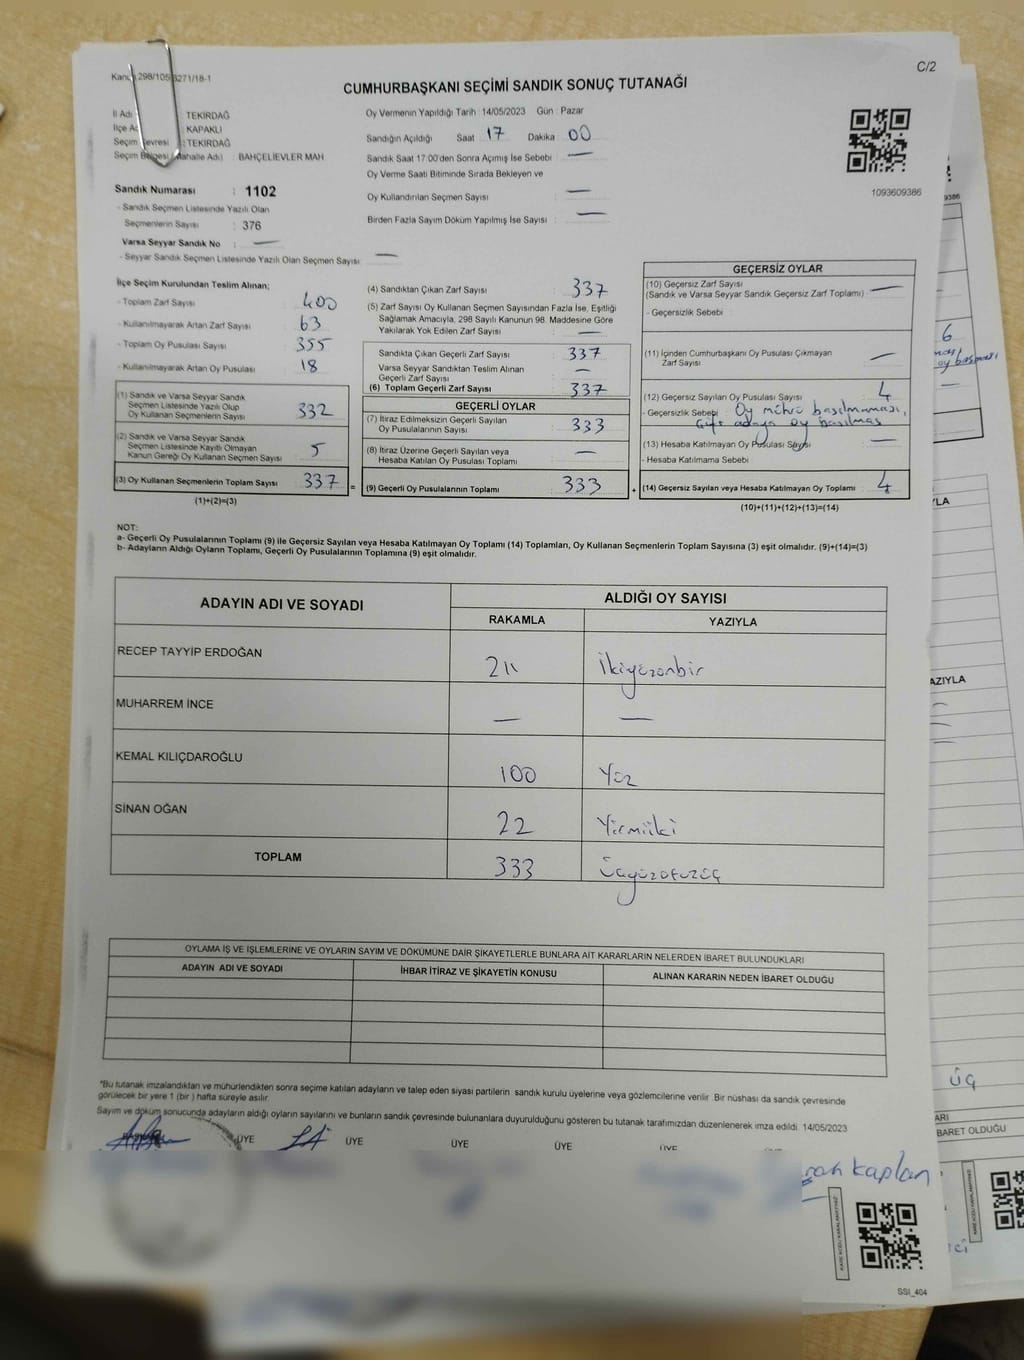 C/2
Kanun 298/105 6271/18-1
CUMHURBAŞKANI SEÇİMİ SANDIK SONUÇ TUTANAĞI
İl Adı : TEKİRDAĞ
İlçe Adı : KAPAKLI
Seçim Çevresi : TEKİRDAĞ
Seçim Bölgesi (Mahalle Adı) : BAHÇELİEVLER MAH
Sandık Numarası : 1102
- Sandık Seçmen Listesinde Yazılı Olan
Seçmenlerin Sayısı : 376
Varsa Seyyar Sandık No : —
- Seyyar Sandık Seçmen Listesinde Yazılı Olan Seçmen Sayısı : —
Oy Vermenin Yapıldığı Tarih : 14/05/2023 Gün : Pazar
Sandığın Açıldığı Saat 17 Dakika 00
Sandık Saat 17:00'den Sonra Açımış İse Sebebi : —
Oy Verme Saati Bitiminde Sırada Bekleyen ve
Oy Kullandırılan Seçmen Sayısı : —
Birden Fazla Sayım Döküm Yapılmış İse Sayısı : —
1093609386
İlçe Seçim Kurulundan Teslim Alınan;
- Toplam Zarf Sayısı : 400
- Kullanılmayarak Artan Zarf Sayısı : 63
- Toplam Oy Pusulası Sayısı : 355
- Kullanılmayarak Artan Oy Pusulası : 18
(1) Sandık ve Varsa Seyyar Sandık
Seçmen Listesinde Yazılı Olup
Oy Kullanan Seçmenlerin Sayısı : 332
(2) Sandık ve Varsa Seyyar Sandık
Seçmen Listesinde Kayıtlı Olmayan
Kanun Gereği Oy Kullanan Seçmen Sayısı : 5
(3) Oy Kullanan Seçmenlerin Toplam Sayısı : 337
(1)+(2)=(3)
(4) Sandıktan Çıkan Zarf Sayısı : 337
(5) Zarf Sayısı Oy Kullanan Seçmen Sayısından Fazla İse, Eşitliği
Sağlamak Amacıyla, 298 Sayılı Kanunun 98. Maddesine Göre
Yakılarak Yok Edilen Zarf Sayısı : —
Sandıkta Çıkan Geçerli Zarf Sayısı : 337
Varsa Seyyar Sandıktan Teslim Alınan
Geçerli Zarf Sayısı : —
(6) Toplam Geçerli Zarf Sayısı : 337
GEÇERLİ OYLAR
(7) İtiraz Edilmeksizin Geçerli Sayılan
Oy Pusulalarının Sayısı : 333
(8) İtiraz Üzerine Geçerli Sayılan veya
Hesaba Katılan Oy Pusulası Toplamı : —
= (9) Geçerli Oy Pusulalarının Toplamı : 333
GEÇERSİZ OYLAR
(10) Geçersiz Zarf Sayısı
(Sandık ve Varsa Seyyar Sandık Geçersiz Zarf Toplamı) : —
- Geçersizlik Sebebi :
(11) İçinden Cumhurbaşkanı Oy Pusulası Çıkmayan
Zarf Sayısı : —
(12) Geçersiz Sayılan Oy Pusulası Sayısı : 4
- Geçersizlik Sebebi : Oy mührü basılmaması,
Çift adaya oy basılması
(13) Hesaba Katılmayan Oy Pusulası Sayısı : —
- Hesaba Katılmama Sebebi
+ (14) Geçersiz Sayılan veya Hesaba Katılmayan Oy Toplamı : 4
(10)+(11)+(12)+(13)=(14)
NOT:
a- Geçerli Oy Pusulalarının Toplamı (9) ile Geçersiz Sayılan veya Hesaba Katılmayan Oy Toplamı (14) Toplamları, Oy Kullanan Seçmenlerin Toplam Sayısına (3) eşit olmalıdır. (9)+(14)=(3)
b- Adayların Aldığı Oyların Toplamı, Geçerli Oy Pusulalarının Toplamına (9) eşit olmalıdır.
ADAYIN ADI VE SOYADI ALDIĞI OY SAYISI
RAKAMLA YAZIYLA
RECEP TAYYİP ERDOĞAN 211 İkiyüzonbir
MUHARREM İNCE — —
KEMAL KILIÇDAROĞLU 100 Yüz
SİNAN OĞAN 22 Yirmiiki
TOPLAM 333 Üçyüzotuzüç
OYLAMA İŞ VE İŞLEMLERİNE VE OYLARIN SAYIM VE DÖKÜMÜNE DAİR ŞİKAYETLERLE BUNLARA AİT KARARLARIN NELERDEN İBARET BULUNDUKLARI
ADAYIN ADI VE SOYADI İHBAR İTİRAZ VE ŞİKAYETİN KONUSU ALINAN KARARIN NEDEN İBARET OLDUĞU
*Bu tutanak imzalandıktan ve mühürlendikten sonra seçime katılan adayların ve talep eden siyasi partilerin sandık kurulu üyelerine veya gözlemcilerine verilir. Bir nüshası da sandık çevresinde
görülecek bir yere 1 (bir) hafta süreyle asılır.
Sayım ve döküm sonucunda adayların aldığı oyların sayılarını ve bunların sandık çevresinde bulunanlara duyurulduğunu gösteren bu tutanak tarafımızdan düzenlenerek imza edildi. 14/05/2023
ÜYE ÜYE ÜYE ÜYE ÜYE
kaplan
SSI_404
9386
6
oy basması
YLA
AZIYLA
üç
ARI
BARET OLDUĞU